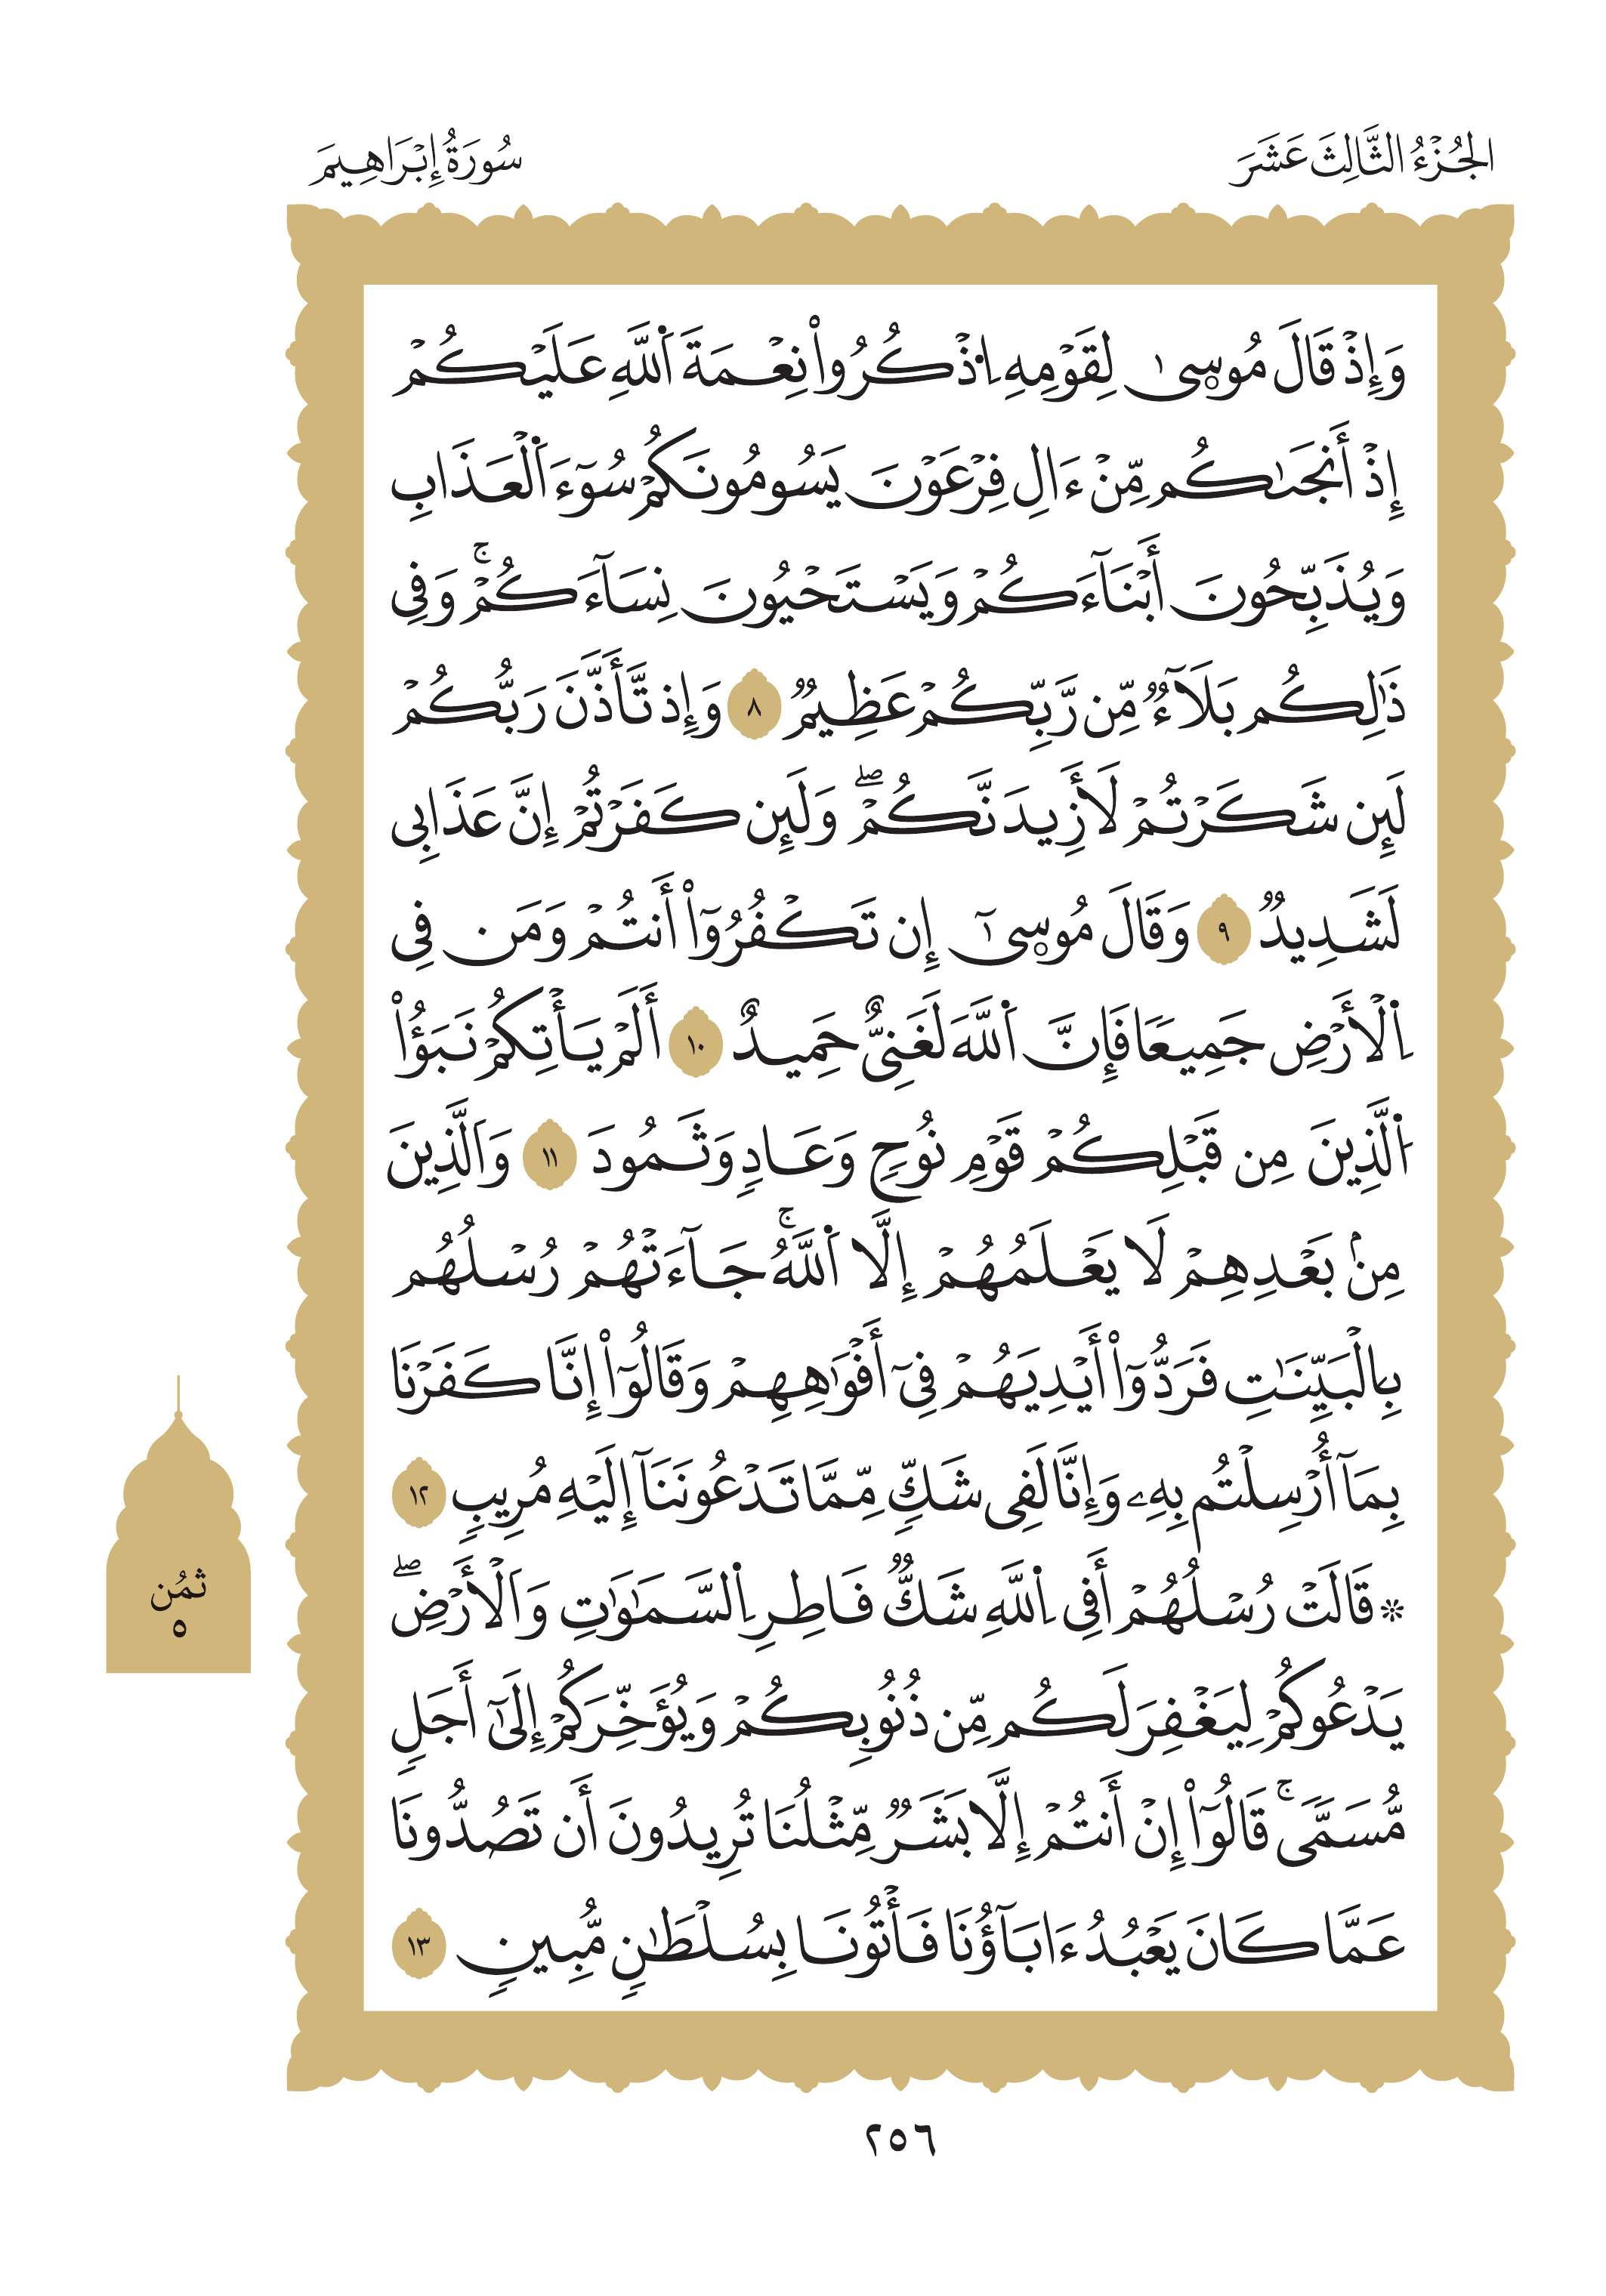 الجُزْءُ الثَّالِثَ عَشَرَ
سُورَةُ إِبْرَاهِيمَ
وَإِذْ قَالَ مُوسۭيٰ لِقَوْمِهِ اِ۟ذْكُرُواْ نِعْمَةَ اَ۬للَّهِ عَلَيْكُمْ
إِذْ أَنجَىٰكُم مِّنْ ءَالِ فِرْعَوْنَ يَسُومُونَكُمْ سُوٓءَ اَ۬لْعَذَابِ
وَيُذَبِّحُونَ أَبْنَآءَكُمْ وَيَسْتَحْيُونَ نِسَآءَكُمْۚ وَفِي
ذَٰلِكُم بَلَآءٞ مِّن رَّبِّكُمْ عَظِيمٞ ٨ وَإِذ تَّأَذَّنَ رَبُّكُمْ
لَئِن شَكَرْتُمْ لَأَزِيدَنَّكُمْۖ وَلَئِن كَفَرْتُمْ إِنَّ عَذَابِي
لَشَدِيدٞ ٩ وَقَالَ مُوسۭيٰٓ إِن تَكْفُرُوٓاْ أَنتُمْ وَمَن فِي
اِ۬لْأَرْضِ جَمِيعٗا فَإِنَّ اَ۬للَّهَ لَغَنِيٌّ حَمِيدٌ ١٠ أَلَمْ يَأْتِكُمْ نَبَؤُاْ
اُ۬لَّذِينَ مِن قَبْلِكُمْ قَوْمِ نُوحٖ وَعَادٖ وَثَمُودَ ١١ وَاَلَّذِينَ
مِنۢ بَعْدِهِمْ لَا يَعْلَمُهُمْ إِلَّا اَ۬للَّهُۚ جَآءَتْهُمْ رُسْلُهُم
بِالْبَيِّنَٰتِ فَرَدُّوٓاْ أَيْدِيَهُمْ فِيٓ أَفْوَٰهِهِمْ وَقَالُوٓاْ إِنَّا كَفَرْنَا
بِمَآ أُرْسِلْتُم بِهِۦ وَإِنَّا لَفِي شَكّٖ مِّمَّا تَدْعُونَنَآ إِلَيْهِ مُرِيبٖ ١٢
۞ قَالَتْ رُسْلُهُمْ أَفِي اِ۬للَّهِ شَكّٞ فَاطِرِ اِ۬لسَّمَٰوَٰتِ وَاَلْأَرْضِۖ
يَدْعُوكُمْ لِيَغْفِرَ لَكُم مِّن ذُنُوبِكُمْ وَيُؤَخِّرَكُمْ إِلَىٰٓ أَجَلٖ
مُّسَمّٗىۚ قَالُوٓاْ إِنْ أَنتُمْ إِلَّا بَشَرٞ مِّثْلُنَا تُرِيدُونَ أَن تَصُدُّونَا
عَمَّا كَانَ يَعْبُدُ ءَابَآؤُنَا فَأْتُونَا بِسُلْطَٰنٖ مُّبِينٖ ١٣
ثُمُن
٥
٢٥٦